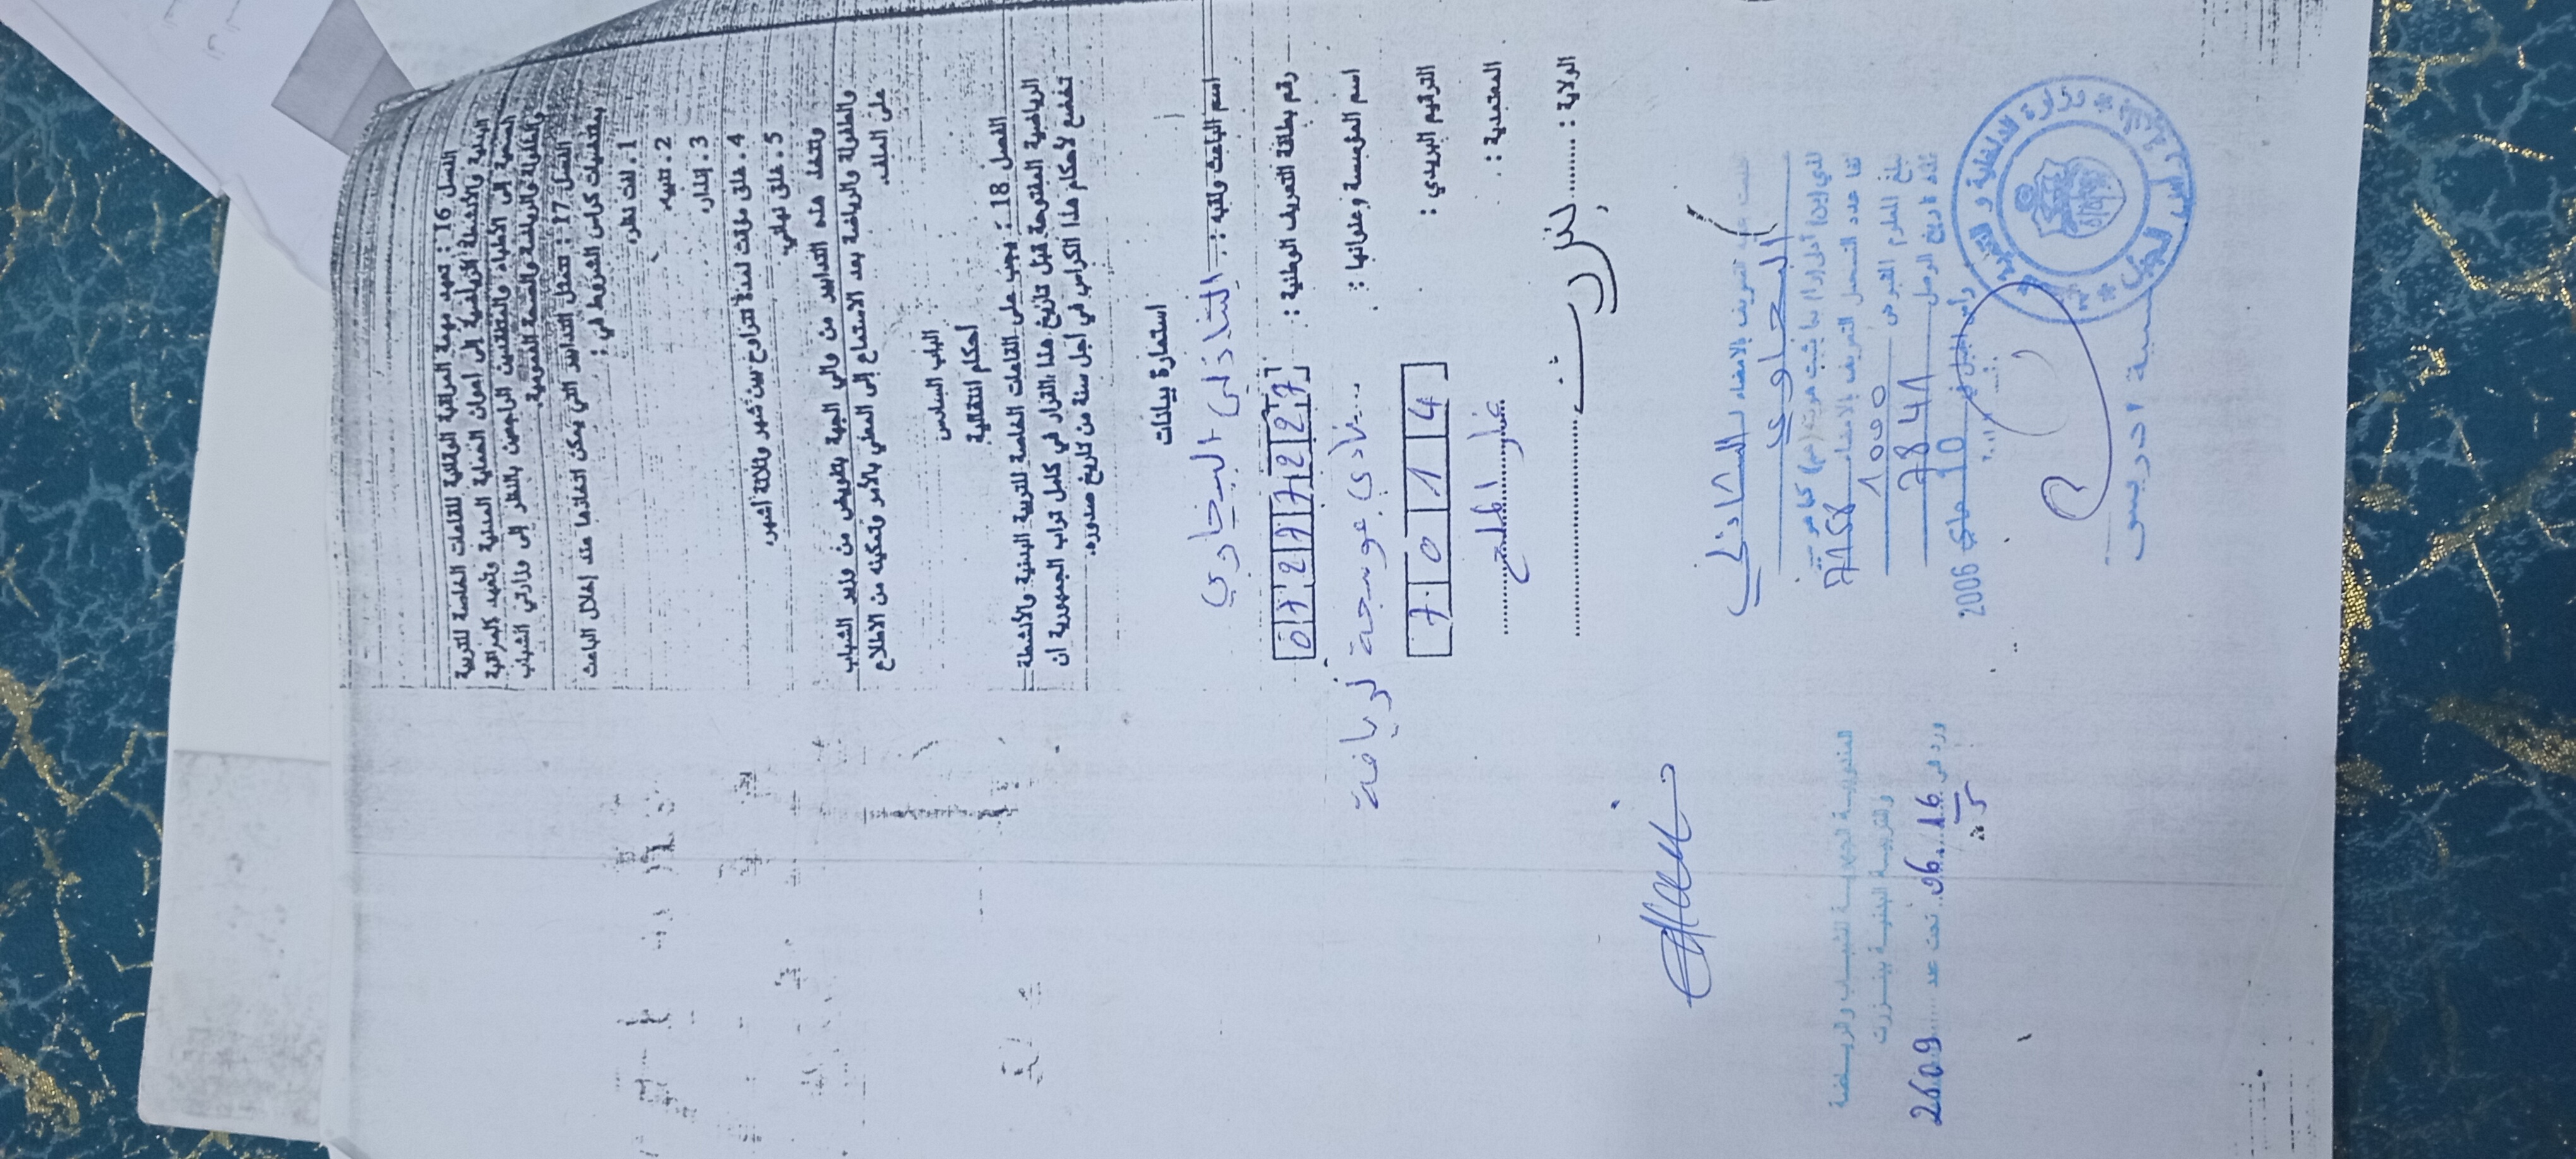 الفصل 16 : تعهد مهمة المراقبة الوقائية للقاعات الخاصة للتربية
البدنية والأنشطة الرياضية إلى أعوان الحماية المدنية وتعهد المراقبة
الصحية إلى الأطباء والمتفقدين الراجعين بالنظر إلى وزارتي الشباب
والطفولة والرياضة والصحة العمومية.
الفصل 17 : تتمثل التدابير التي يمكن اتخاذها عند إخلال الباعث
بمقتضيات كراس الشروط في :
1 . لفت نظر،
2 . تنبيه،
3 . إنذار،
4 . غلق مؤقت لمدة تتراوح بين شهر وثلاثة أشهر،
5 . غلق نهائي.
وتتخذ هذه التدابير من والي الجهة بتفويض من وزير الشباب
والطفولة والرياضة بعد الاستماع إلى المعني بالأمر وتمكينه من الاطلاع
على الملف.
الباب السادس
أحكام انتقالية
الفصل 18 : يجب على القاعات الخاصة للتربية البدنية والأنشطة
الرياضية المفتوحة قبل تاريخ هذا القرار في كامل تراب الجمهورية أن
تخضع لأحكام هذا الكراس في أجل سنة من تاريخ صدوره.
استمارة بيانات
اسم الباعث ولقبه : الشاذلي
رقم بطاقة التعريف الوطنية : 07297227
اسم المؤسسة وعنوانها : نادي عوسجة لرياضة
الترقيم البريدي : 7014
المعتمدية : غار الملح
الولاية : بنزرت
التعريف بالامضاء لـ الشاذلي
عدد التسجيل التعريف بالامضاء
مبلغ المعلوم المقبوض 1000
تاريخ الوصل 7841
رأس الجبل في 10 ماي 2006
وزارة الداخلية و التنمية المحلية
رأس الجبل
المندوبية الجهوية للشباب والرياضة
والتربية البدنية ببنزرت
ورد في 16 .06 تحت عدد 2609
5